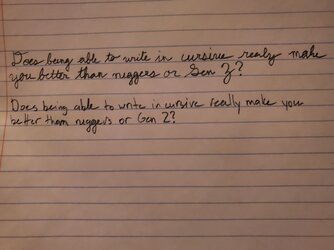 Does being able to write in cursive really make
you better than neggers or Gen Z?
Does being able to write in cursive really make you
better than neggers or Gen Z?